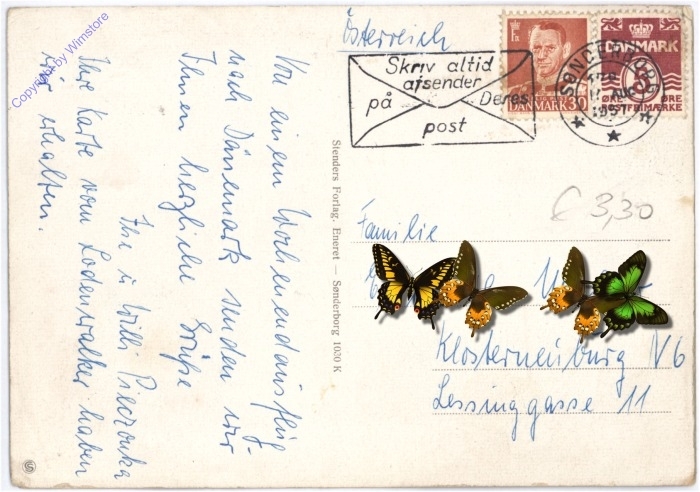 Copyright by Wimstore
Von einem Wochenendausflug
nach Dänemark senden wir
Ihnen herzliche Grüße
Ihre u. Willi
Ihre Karte vom Lodenwalker haben
wir erhalten.
Stenders Forlag. Eneret — Sønderborg 1020 K
Österreich
Skriv altid
afsender
på Deres
post
DANMARK 30
DANMARK
ØRE ØRE
POSTFRIMÆRKE
SØNDERBORG
1957
€ 3,30
Familie
Klosterneuburg V6
Lessinggasse 11